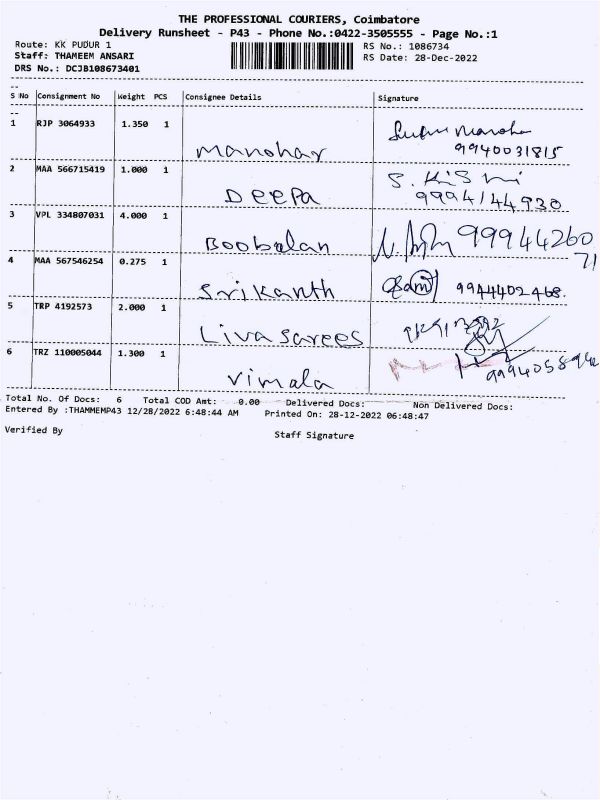 THE PROFESSIONAL COURIERS, Coimbatore
Delivery Runsheet - P43 - Phone No.:0422-3505555 - Page No.:1
Route: KK PUDUR 1 RS No.: 1086734
Staff: THAMEEM ANSARI RS Date: 28-Dec-2022
DRS No.: DCJB108673401
S No Consignment No Weight PCS Consignee Details Signature
1 RJP 3064933 1.350 1 Manohar
9940031815
2 MAA 566715419 1.000 1 Deepa
9994144930
3 VPL 334807031 4.000 1 Boobalan 9994426071
4 MAA 567546254 0.275 1 Srikanth 9944402468.
5 TRP 4192573 2.000 1 Liva Sarees
6 TRZ 110005044 1.300 1 Vimala
Total No. Of Docs: 6 Total COD Amt: 0.00 Delivered Docs: Non Delivered Docs:
Entered By :THAMMEMP43 12/28/2022 6:48:44 AM Printed On: 28-12-2022 06:48:47
Verified By Staff Signature